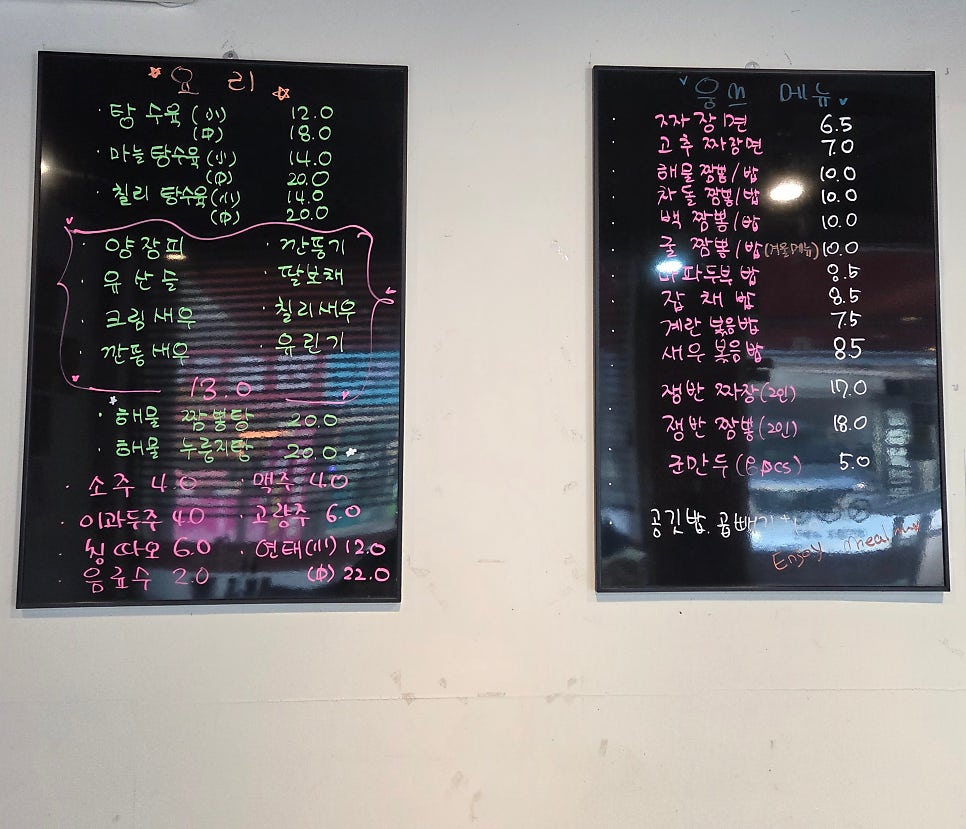 요 리
· 탕수육 (小) 12.0
(中) 18.0
· 마늘 탕수육 (小) 14.0
(中) 20.0
· 칠리 탕수육 (小) 14.0
(中) 20.0
· 양장피 · 깐풍기
· 유산슬 · 깔보채
· 크림새우 · 칠리새우
· 깐풍새우 · 유린기
13.0
· 해물 짬뽕탕 20.0
· 해물 누룽지탕 20.0
· 소주 4.0 · 맥주 4.0
· 이과두주 4.0 · 고량주 6.0
· 칭따오 6.0 · 연태(小) 12.0
· 음료수 2.0 (中) 22.0
웅쓰 메뉴
· 짜장면 6.5
· 고추 짜장면 7.0
· 해물 짬뽕/밥 10.0
· 차돌 짬뽕/밥 10.0
· 백 짬뽕/밥 10.0
· 굴 짬뽕/밥 (겨울메뉴) 10.0
· 마파두부밥 8.5
· 잡채밥 8.5
· 계란 볶음밥 7.5
· 새우 볶음밥 8.5
· 쟁반 짜장(2인) 17.0
· 쟁반 짬뽕(2인) 18.0
· 군만두 (8pcs) 5.0
· 공깃밥. 곱빼기
Enjoy meal